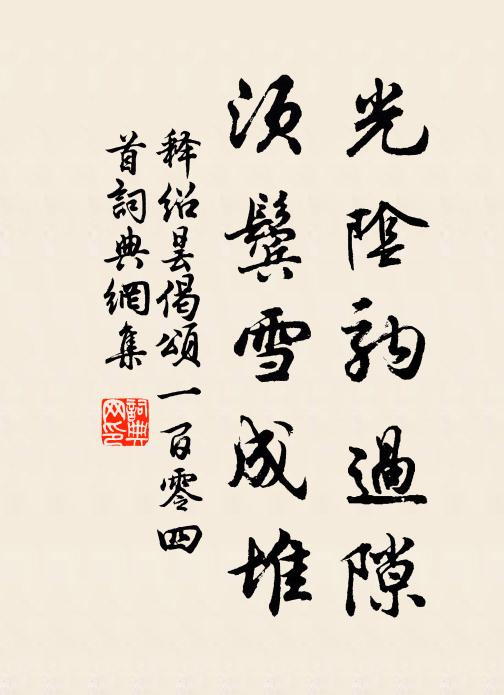 光陰駒過隙
須鬢雪成堆
释绍昙偈頌一百零四
首詞典網集
詞典网印